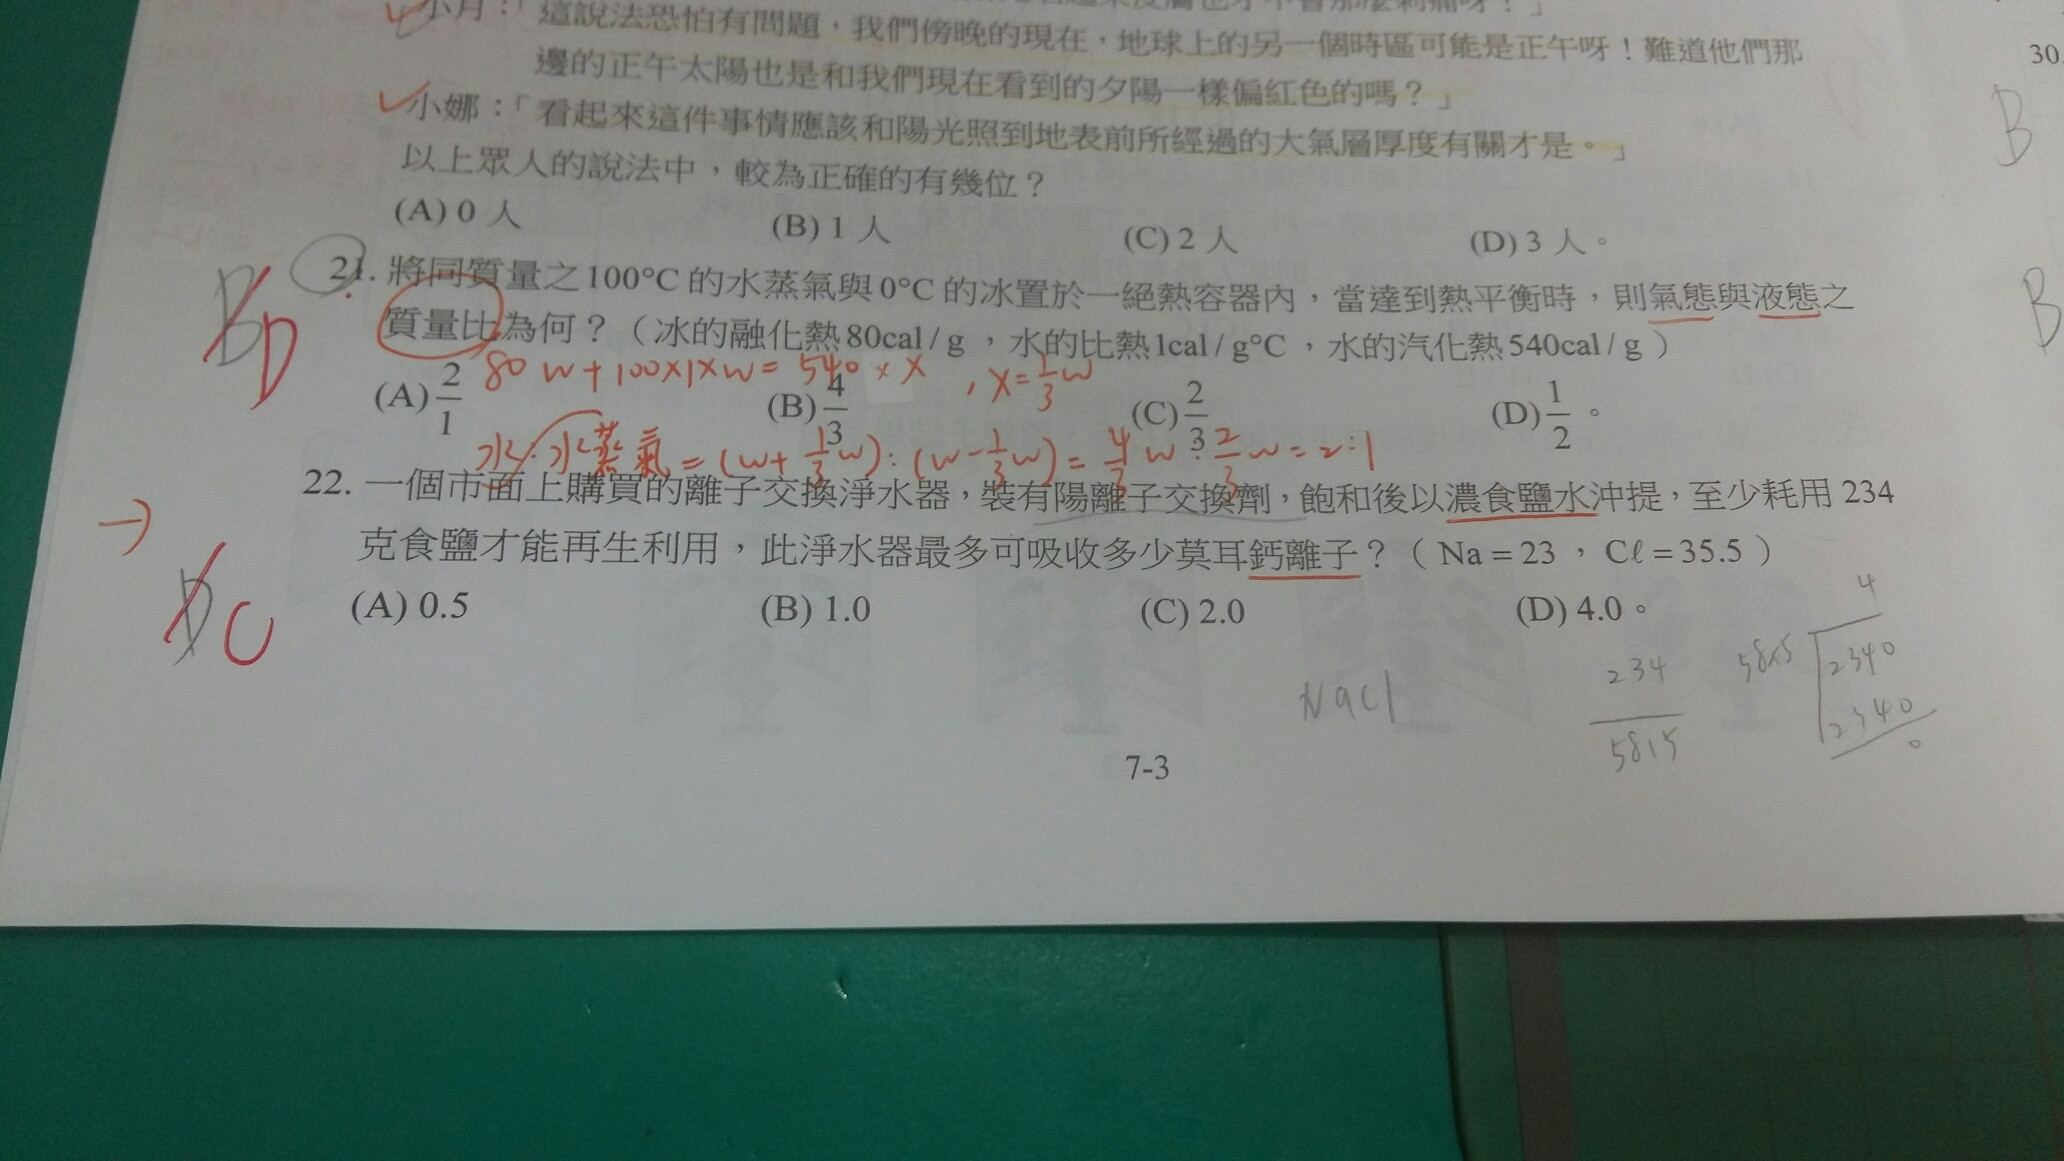 小月：「這說法恐怕有問題，我們傍晚的現在，地球上的另一個時區可能是正午呀！難道他們那
邊的正午太陽也是和我們現在看到的夕陽一樣偏紅色的嗎？」
✓小娜：「看起來這件事情應該和陽光照到地表前所經過的大氣層厚度有關才是。」
以上眾人的說法中，較為正確的有幾位？
(A) 0 人 (B) 1 人 (C) 2 人 (D) 3 人。
B D
21. 將同質量之100°C的水蒸氣與0°C的冰置於一絕熱容器內，當達到熱平衡時，則氣態與液態之
質量比為何？（冰的融化熱80cal / g ，水的比熱1cal / g°C ，水的汽化熱540cal / g ）
80 w + 100×1×w = 540 × x , x = 1/3 w
(A) 2/1 (B) 4/3 (C) 2/3 (D) 1/2 。
水:水蒸氣 = (w + 1/3 w) : (w - 1/3 w) = 4/3 w : 2/3 w = 2:1
22. 一個市面上購買的離子交換淨水器，裝有陽離子交換劑，飽和後以濃食鹽水沖提，至少耗用 234
→
克食鹽才能再生利用，此淨水器最多可吸收多少莫耳鈣離子？（ Na = 23 ， Cℓ = 35.5 ）
D C
(A) 0.5 (B) 1.0 (C) 2.0 (D) 4.0。
NaCl
234
58.5
4
58.5
2340
2340
0
7-3
30.
B
B